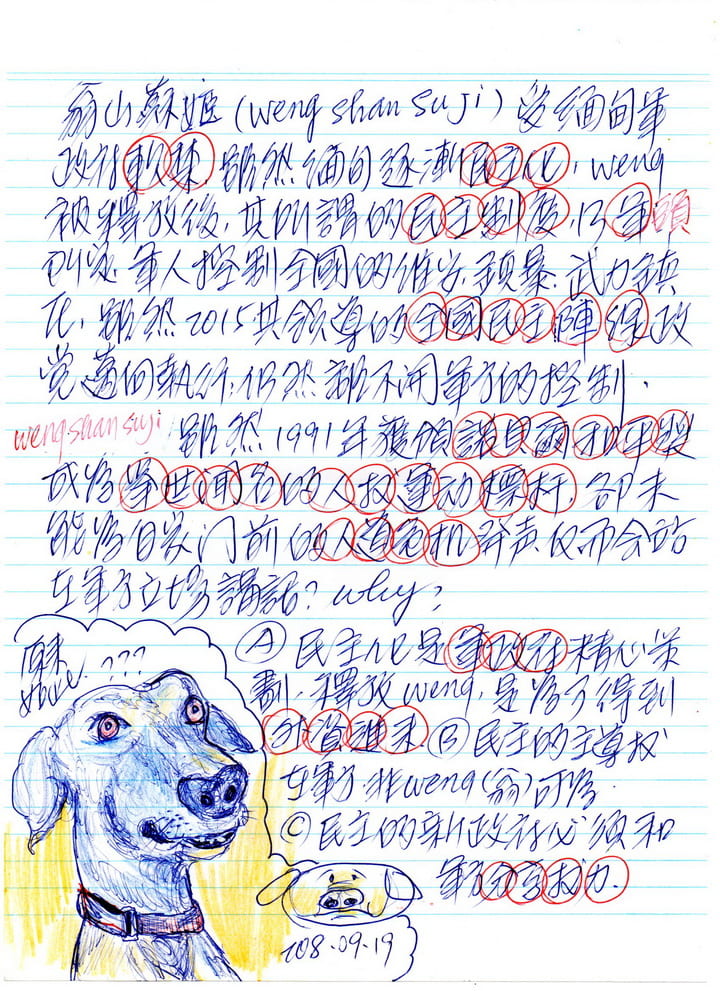 翁山蘇姬(weng shan su ji)被緬甸軍
政府軟禁,雖然緬甸逐漸民主化,weng
被釋放後,其所謂的民主制度,以軍頭
軍人控制全國的維安、鎮暴、武力鎮
雖然2015其領導的全國民主陣線政
党邁向執行,仍然離不開軍方的控制.
weng shan suji 雖然1991年獲頒諾貝爾和平獎
成為舉世闻名的人权運动標杆,卻未
能為自家门前的人道危机發声,反而会站
在軍方立場講話?why?
原來如此.???
Ⓐ民主化是軍政府精心策
劃,釋放weng,是為了得到
外資進來.Ⓑ民主的主導权
在軍方,非weng(翁)可為.
Ⓒ民主的新政府必須和
軍方分享权力.
108.09.19